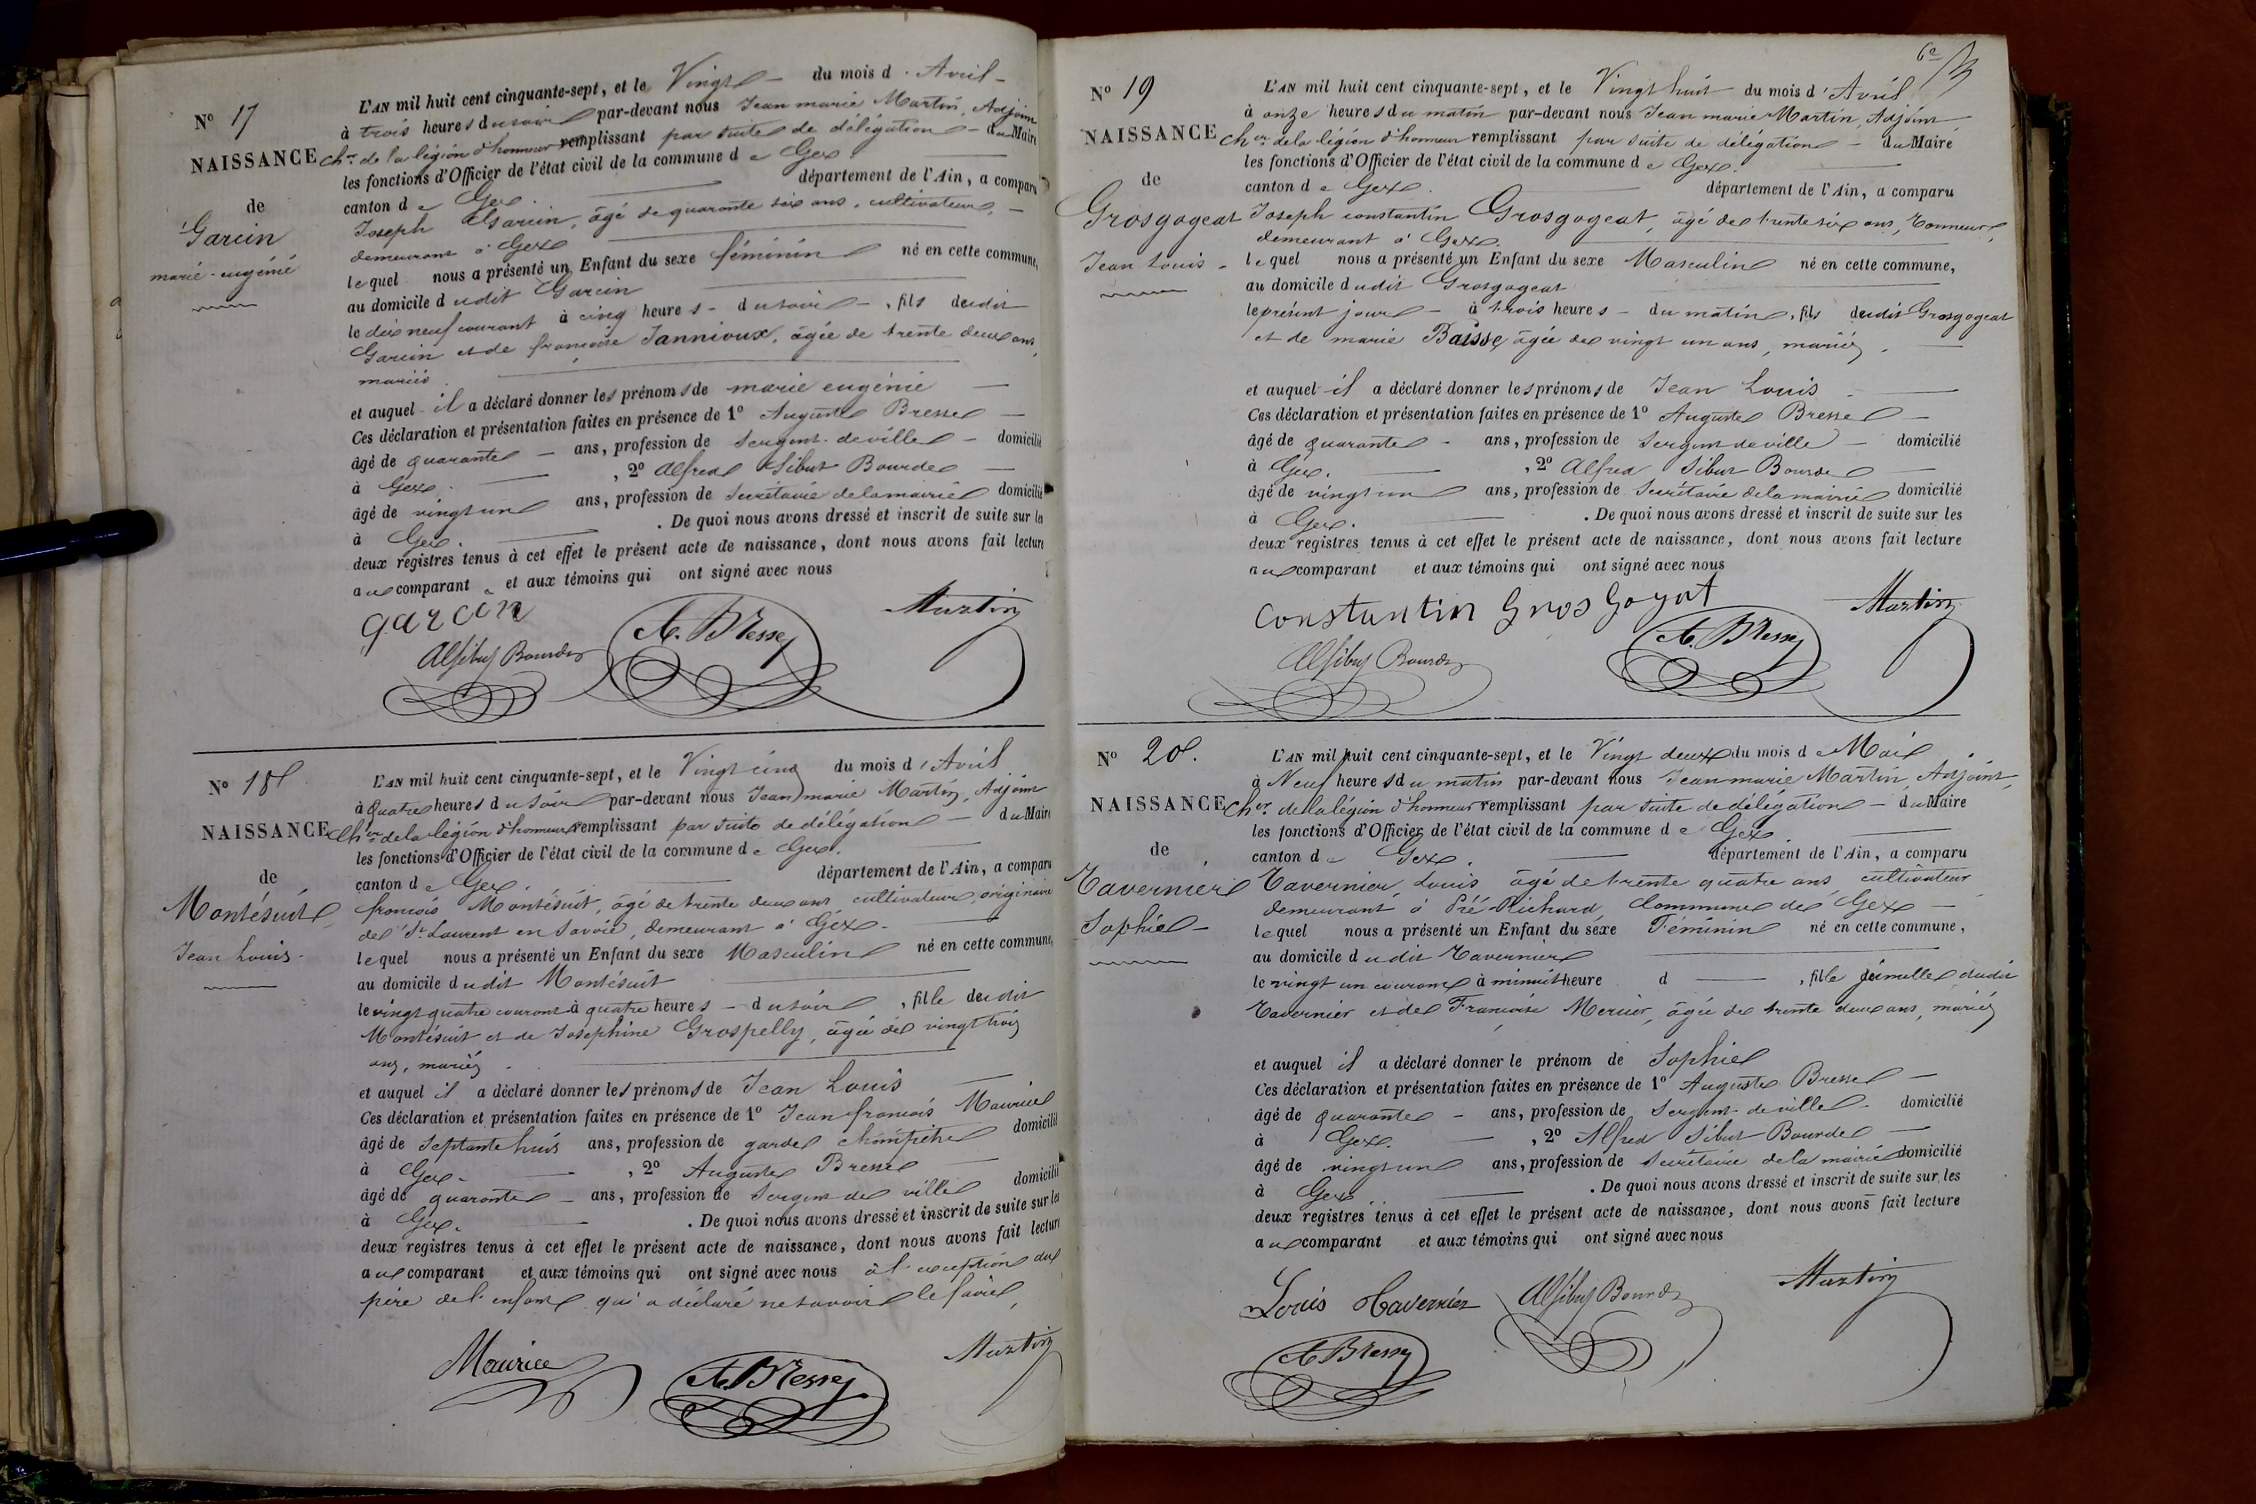 N° 17
NAISSANCE
de
Garcin
marie-eugénie
L'AN mil huit cent cinquante-sept, et le Vingt du mois d'Avril
à trois heures du soir par-devant nous Jean marie Martin, Adjoint
Cher de la légion d'honneur remplissant par suite de délégation du Maire
les fonctions d'Officier de l'état civil de la commune de Gex
canton de Gex. département de l'Ain, a comparu
Joseph Garcin, âgé de quarante six ans, cultivateur,
demeurant à Gex
lequel nous a présenté un Enfant du sexe féminin né en cette commune,
au domicile dudit Garcin
le dix neuf courant à cinq heures du soir, fils dudit
Garcin et de françoise Jannioux, âgée de trente deux ans,
mariés
et auquel il a déclaré donner les prénoms de marie eugénie
Ces déclaration et présentation faites en présence de 1° Auguste Bresse
âgé de quarante ans, profession de Sergent de ville domicilié
à Gex. , 2° Alfred Sibut Bourde
âgé de vingt un ans, profession de Secrétaire de la mairie domicilié
à Gex. . De quoi nous avons dressé et inscrit de suite sur les
deux registres tenus à cet effet le présent acte de naissance, dont nous avons fait lecture
au comparant et aux témoins qui ont signé avec nous
garcin
A. Bresse
Martin
Alf Sibut Bourde
N° 18
NAISSANCE
de
Montésuit
Jean Louis.
L'AN mil huit cent cinquante-sept, et le Vingt cinq du mois d'Avril
à quatre heures du soir par-devant nous Jean marie Martin, Adjoint
Cher de la légion d'honneur remplissant par suite de délégation du Maire
les fonctions d'Officier de l'état civil de la commune de Gex.
canton de Gex. département de l'Ain, a comparu
françois Montésuit, âgé de trente deux ans cultivateur, originaire
de St Laurent en Savoie, demeurant à Gex.
lequel nous a présenté un Enfant du sexe Masculin né en cette commune,
au domicile dudit Montésuit
le vingt quatre courant à quatre heures du soir, fille dudit
Montésuit et de Josephine Grospelly, âgée de vingt trois
ans, mariés.
et auquel il a déclaré donner les prénoms de Jean Louis
Ces déclaration et présentation faites en présence de 1° Jean françois Maurice
âgé de septante huit ans, profession de garde champêtre domicilié
à Gex. , 2° Auguste Bresse
âgé de quarante ans, profession de Sergent de ville domicilié
à Gex. . De quoi nous avons dressé et inscrit de suite sur les
deux registres tenus à cet effet le présent acte de naissance, dont nous avons fait lecture
au comparant et aux témoins qui ont signé avec nous à l'exception du
père de l'enfant qui a déclaré ne savoir le faire,
Maurice
A. Bresse
Martin
6e
N° 19
NAISSANCE
de
Grosgogeat
Jean Louis
L'AN mil huit cent cinquante-sept, et le Vingt huit du mois d'Avril
à onze heures du matin par-devant nous Jean marie Martin, Adjoint
Cher de la légion d'honneur remplissant par suite de délégation du Maire
les fonctions d'Officier de l'état civil de la commune de Gex.
canton de Gex. département de l'Ain, a comparu
Joseph constantin Grosgogeat, âgé de trente six ans, Tonneur,
demeurant à Gex.
lequel nous a présenté un Enfant du sexe Masculin né en cette commune,
au domicile dudit Grosgogeat
le présent jour à trois heures du matin, fils dudit Grosgogeat
et de marie Baisse âgée de vingt un ans, mariés.
et auquel il a déclaré donner les prénoms de Jean Louis
Ces déclaration et présentation faites en présence de 1° Auguste Bresse
âgé de quarante ans, profession de Sergent de ville domicilié
à Gex. , 2° Alfred Sibut Bourde
âgé de vingt un ans, profession de Secrétaire de la mairie domicilié
à Gex. . De quoi nous avons dressé et inscrit de suite sur les
deux registres tenus à cet effet le présent acte de naissance, dont nous avons fait lecture
au comparant et aux témoins qui ont signé avec nous
Constantin Gros Goyat
Martin
A. Bresse
Alf Sibut Bourde
N° 20.
NAISSANCE
de
Tavernier
Sophie
L'AN mil huit cent cinquante-sept, et le Vingt deux du mois de Mai
à Neuf heures du matin par-devant nous Jean marie Martin, Adjoint,
Cher de la légion d'honneur remplissant par suite de délégation du Maire
les fonctions d'Officier de l'état civil de la commune de Gex
canton de Gex. département de l'Ain, a comparu
Tavernier Louis âgé de trente quatre ans cultivateur
demeurant à Pré-Richard, Commune de Gex
lequel nous a présenté un Enfant du sexe Féminin né en cette commune,
au domicile dudit Tavernier
le vingt un courant à minuit heure d , fille jumelle dudit
Tavernier et de Françoise Mercier, âgée de trente deux ans, mariés
et auquel il a déclaré donner le prénom de Sophie
Ces déclaration et présentation faites en présence de 1° Auguste Bresse
âgé de quarante ans, profession de Sergent de ville domicilié
à Gex. , 2° Alfred Sibut Bourde
âgé de vingt un ans, profession de Secrétaire de la mairie domicilié
à Gex . De quoi nous avons dressé et inscrit de suite sur les
deux registres tenus à cet effet le présent acte de naissance, dont nous avons fait lecture
au comparant et aux témoins qui ont signé avec nous
Louis Tavernier
Alf Sibut Bourde
Martin
A Bresse